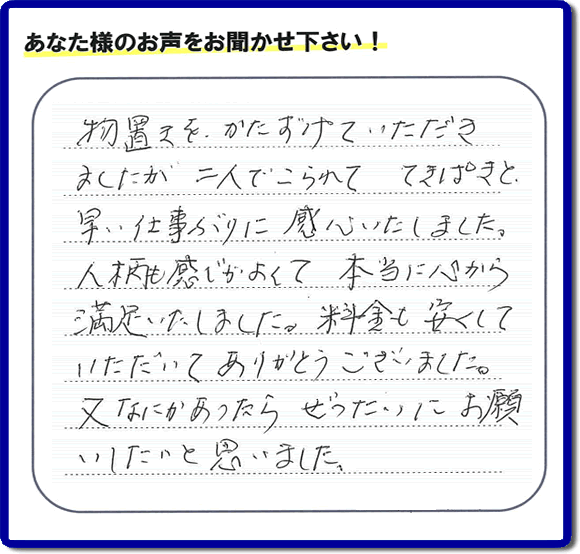 あなた様のお声をお聞かせ下さい！
物置きを、かたずけていただき
ましたが 二人でこられて てきぱきと、
早い仕事ぶりに 感心いたしました。
人柄も感じがよくて 本当に心から
満足いたしました。料金も 安くして
いただいて ありがとうございました。
又なにかあったら ぜったいに お願
いしたいと思いました。